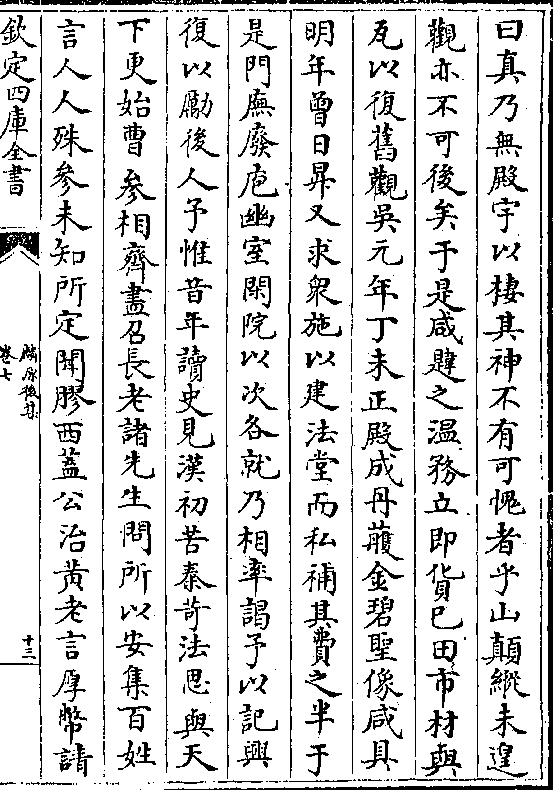 曰真乃無殿宇以棲其神不有可愧者乎山顛縱未遑
觀亦不可後矣于是咸韙之温務立即貨已田市材與
瓦以復舊觀吳元年丁未正殿成丹雘金碧聖像咸具
明年曾日昇又求衆施以建法堂而私補其費之半于
是門廡廢庖幽室閑院以次各就乃相率謁予以記興
復以勵後人予惟昔年讀史見漢初苦秦苛法思與天
下更始曹參相齊盡召長老諸先生問所以安集百姓
言人人殊參未知所定聞膠西蓋公治黃老言厚幣請
欽定四庫全書
麟原後集
卷七
十三